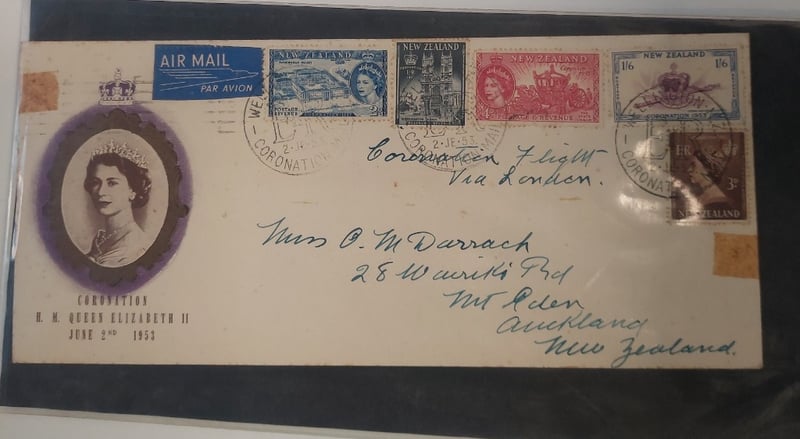 AIR MAIL
PAR AVION
NEW ZEALAND
POSTAGE
REVENUE
NEW ZEALAND
NEW ZEALAND
REVENUE
NEW ZEALAND
1/6 1/6
CORONATION 1953
E R
3D
NEW ZEALAND
CORONATION
2-JE-53
CORONATION MAIL
CORONATION
Coronation Flight
Via London.
Miss O. M Darrach
28 Wairiki Rd
Mt Eden
Auckland
New Zealand.
CORONATION
H. M. QUEEN ELIZABETH II
JUNE 2ND 1953